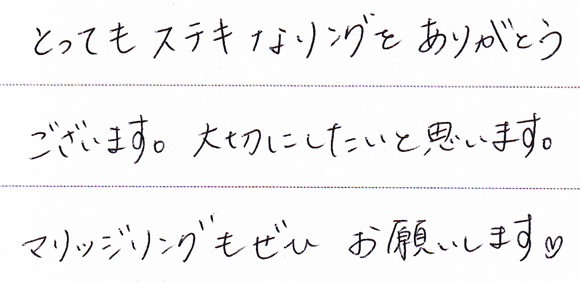 とってもステキなリングを ありがとう
ございます。大切にしたいと思います。
マリッジリングもぜひ お願いします♡